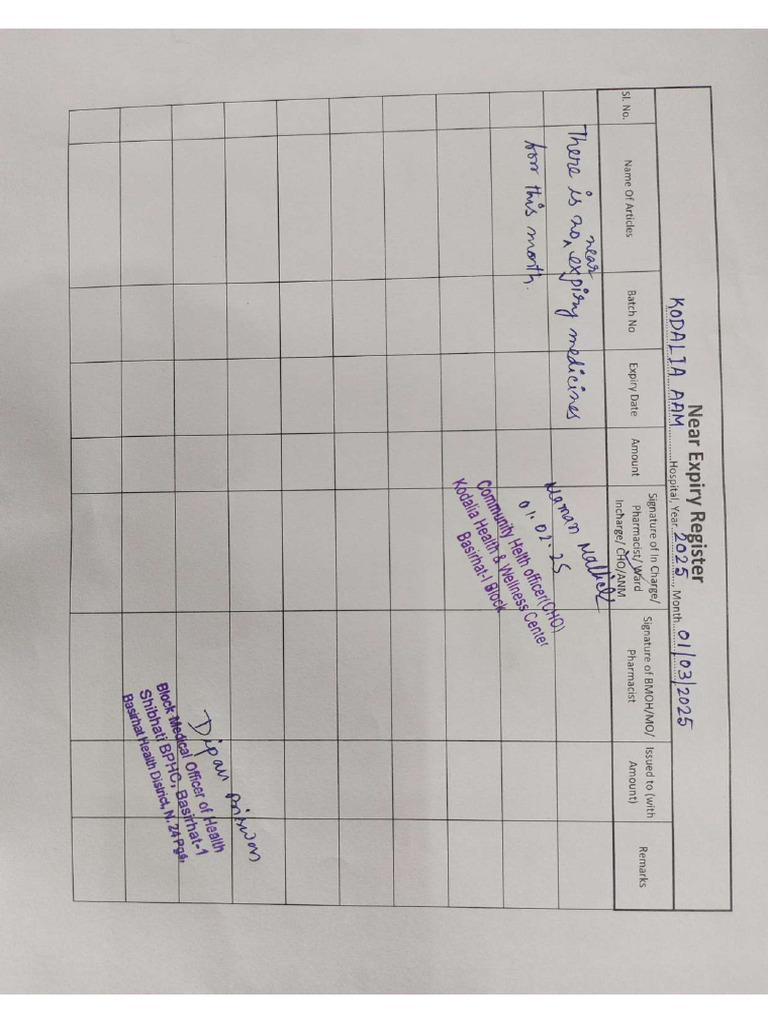 Near Expiry Register
KODALIA AAM Hospital, Year 2025, Month 01/03/2025
Sl. No. Name Of Articles Batch No Expiry Date Amount Signature of In Charge/ Pharmacist/ Ward Incharge/ CHO/ANM Signature of BMOH/MO/ Pharmacist Issued to (with Amount) Remarks
There is no near expiry medicines
for this month.
01.02.25
Community Helth officer(CHO)
Kodalia Health & Wellness Center
Basirhat-I Block
Dipan
Block Medical Officer of Health
Shibhati BPHC, Basirhat-1
Basirhat Health District, N. 24 Pgs.